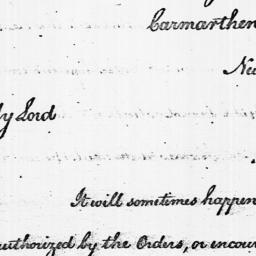 Carmarthen
My Lord
It will sometimes happen
authorized by the Orders, or encour